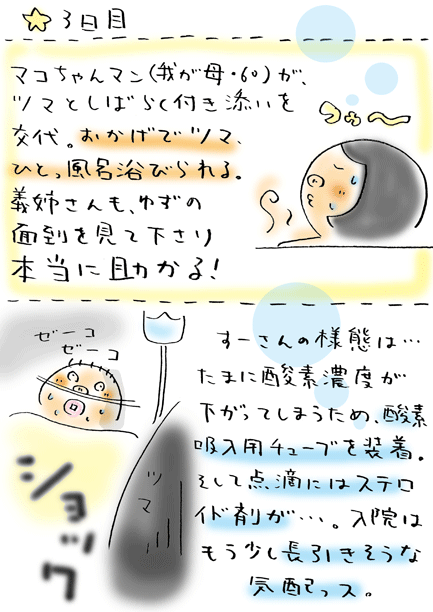 3日目
マコちゃんマン(我が母・60)が、
ツマとしばらく付き添いを
交代。おかげでツマ、
ひとっ風呂浴びられる。
義姉さんも、ゆずの
面到を見て下さり
本当に助かる!
つゅ〜
ゼーコ
ゼーコ
ショック
ツマ
すーさんの様態は…
たまに酸素濃度が
下がってしまうため、酸素
吸入用チューブを装着。
そして点滴にはステロ
イド剤が…。入院は
もう少し長引きそうな
気配っス。